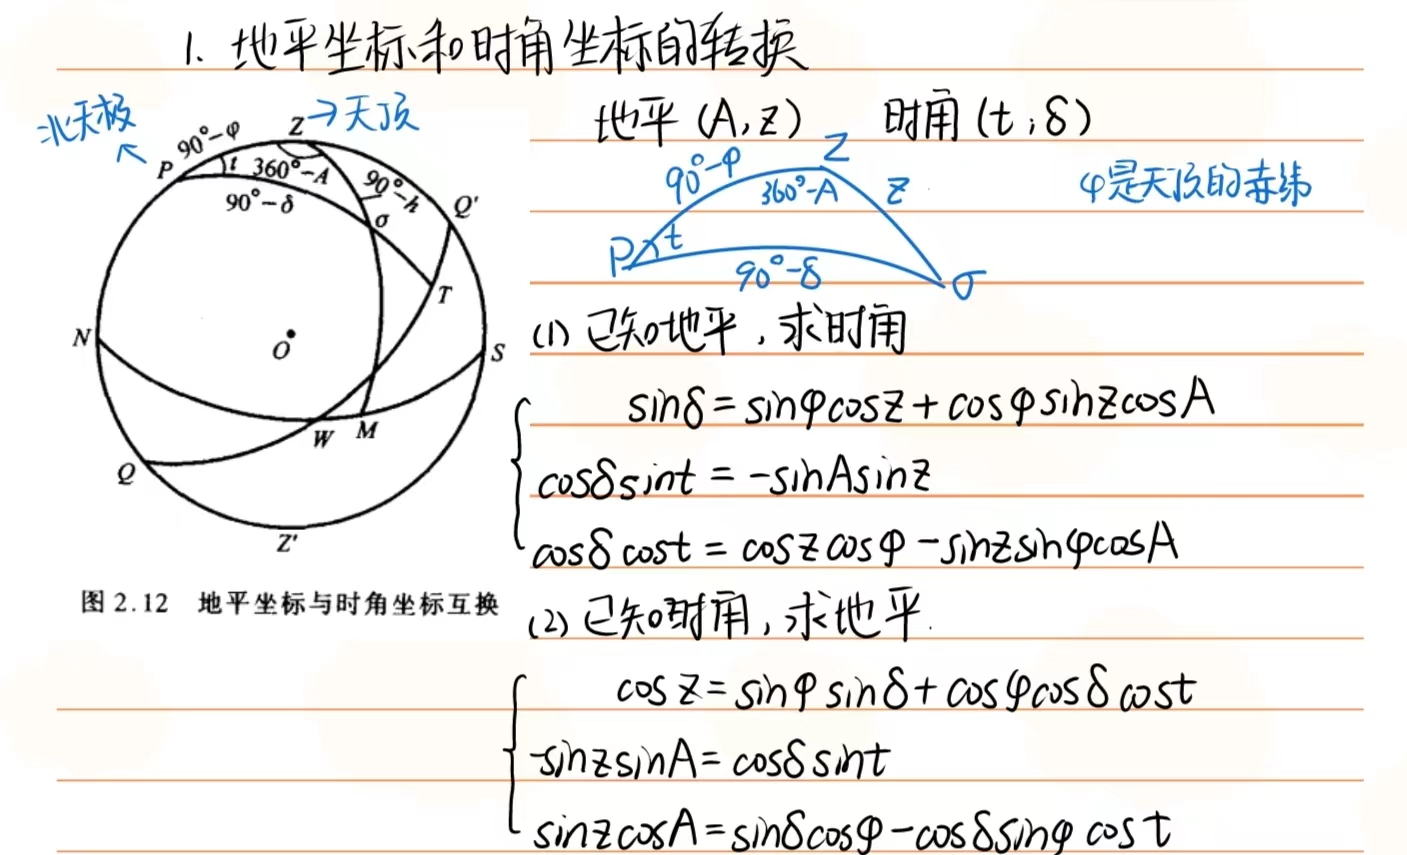 1. 地平坐标和时角坐标的转换
北天极
90°-φ
Z→天顶
P
t
360°-A
90°-h
90°-δ
σ
Q'
T
N
O
S
W
M
Q
Z'
图 2.12 地平坐标与时角坐标互换
地平 (A,z) 时角 (t,δ)
90°-φ
Z
360°-A
z
φ是天顶的赤纬
P
t
90°-δ
σ
(1) 已知地平,求时角
sinδ=sinφcosz+cosφsinzcosA
cosδsint=-sinAsinz
cosδcost=coszcosφ-sinzsinφcosA
(2) 已知时角,求地平.
cosz=sinφsinδ+cosφcosδcost
-sinzsinA=cosδsint
sinzcosA=sinδcosφ-cosδsinφcost